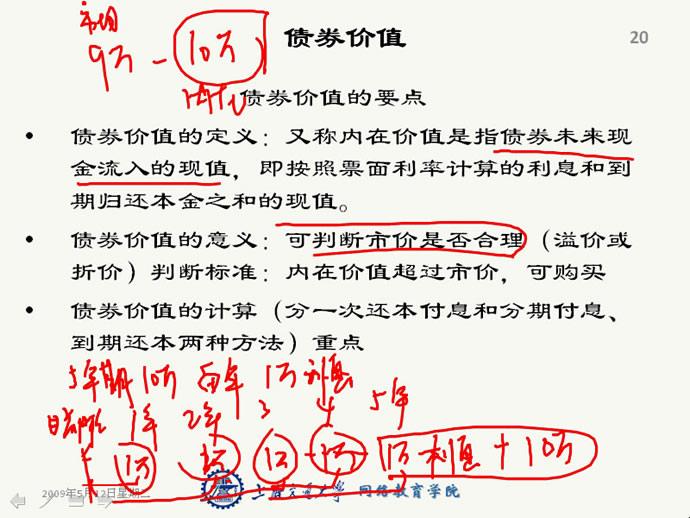 市场
9万 - 10万
债券价值
20
债券价值的要点
• 债券价值的定义：又称内在价值是指债券未来现
金流入的现值，即按照票面利率计算的利息和到
期归还本金之和的现值。
• 债券价值的意义：可判断市价是否合理（溢价或
折价）判断标准：内在价值超过市价，可购买
• 债券价值的计算（分一次还本付息和分期付息、
到期还本两种方法）重点
5年期 10万 每年 1万利息
1年 2年 3 4 5年
1万 1万 1万 1万 1万利息 + 10万
2009年5月12日星期二
上海交通大学 网络教育学院